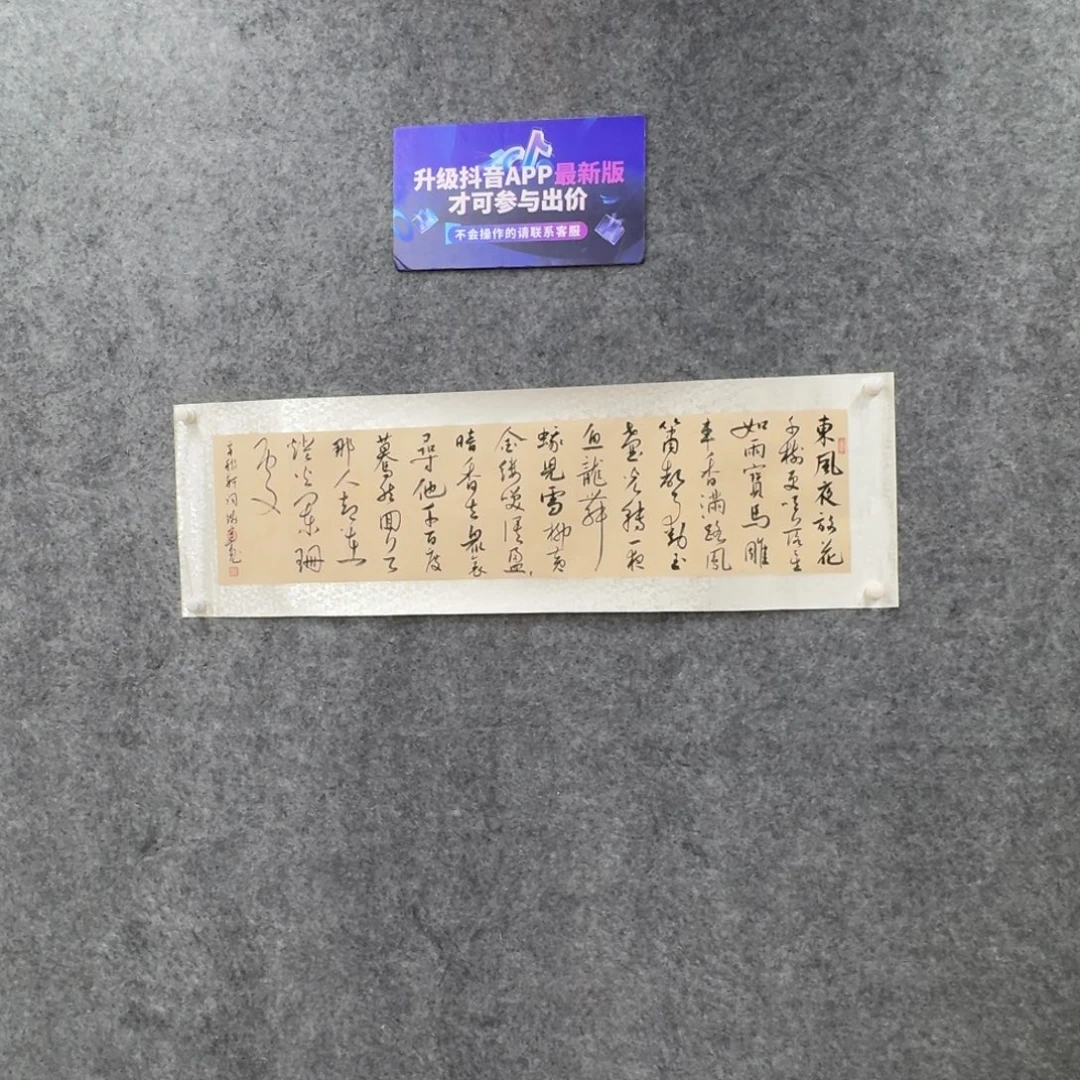 升级抖音APP最新版
才可参与出价
不会操作的请联系客服
東風夜放花
千樹更吹落星
如雨寶馬雕
車香滿路鳳
簫聲動玉
壺光轉一夜
魚龍舞
蛾兒雪柳黃
金縷笑語盈、
暗香去眾裏
尋他千百度
驀然回首
那人却在
燈火闌珊
處
辛稼軒詞